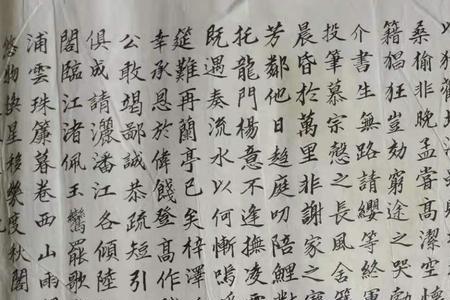 以猶歡
桑榆非晚孟嘗高潔空懷
籍猖狂豈効窮途之哭勃
介書生無路請纓等終軍
投筆慕宗愨之長風舍
晨昏於萬里非謝家之
芳鄰他日趨庭叨陪鯉
托龍門楊意不逢撫凌雲
既遇奏流水以何慚嗚
筵難再蘭亭已矣梓澤
幸承恩於偉餞登高作
公敢竭鄙誠恭疏短引
俱成請灑潘江各傾陸
閣臨江渚佩玉鸞罷歌
浦雲珠簾暮卷西山雨
悠物換星移幾度秋閣